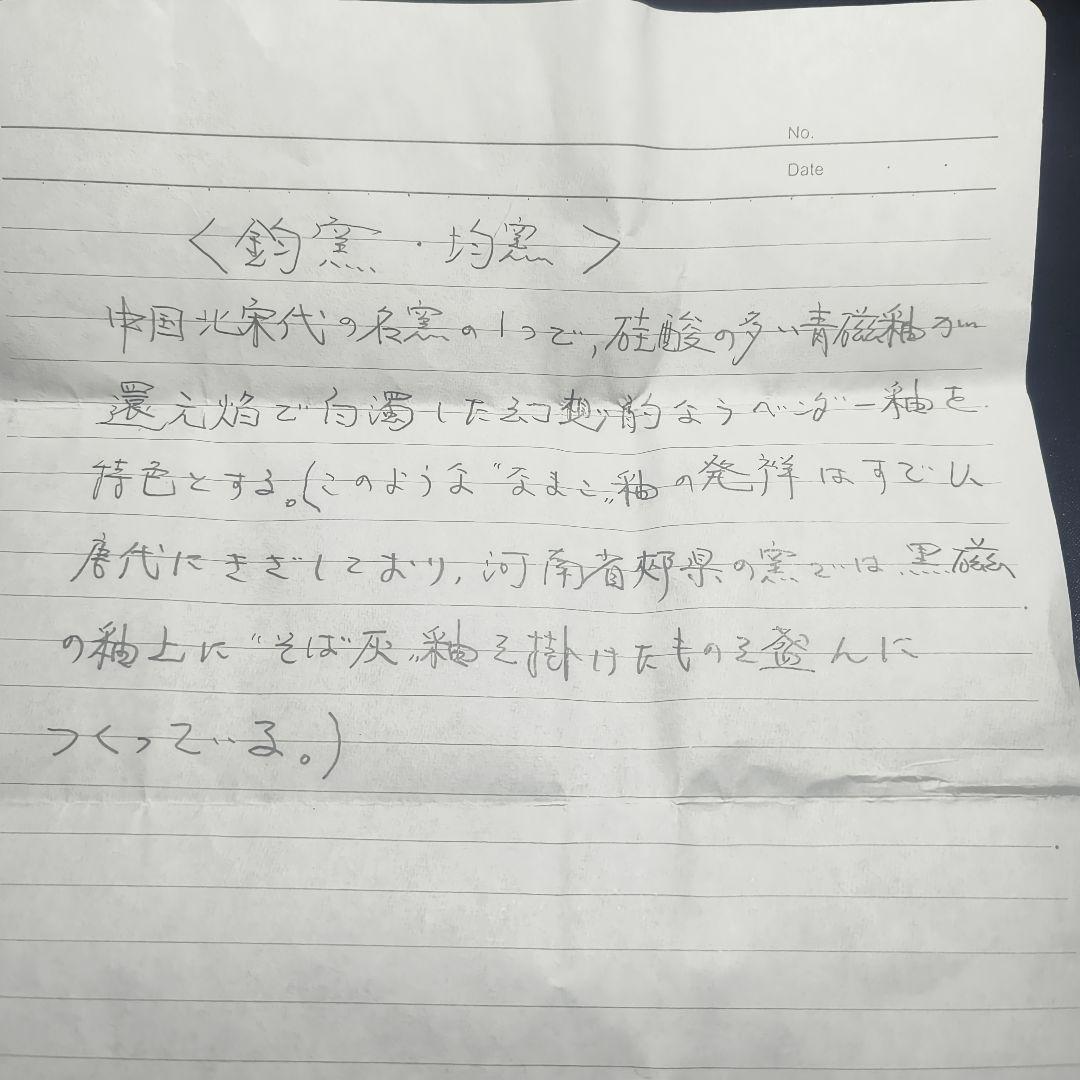 No.
Date
<鈞窯・均窯>
中国北宋代の名窯の1つで,硅酸の多い青磁釉が
還元焔で白濁した幻想的なラベンダー釉を
特色とする。(このような"なまこ"釉の発祥はすでに
唐代にきざしており,河南省郟県の窯では黒磁
の釉上に"そば灰"釉を掛けたものを盛んに
つくっている。)